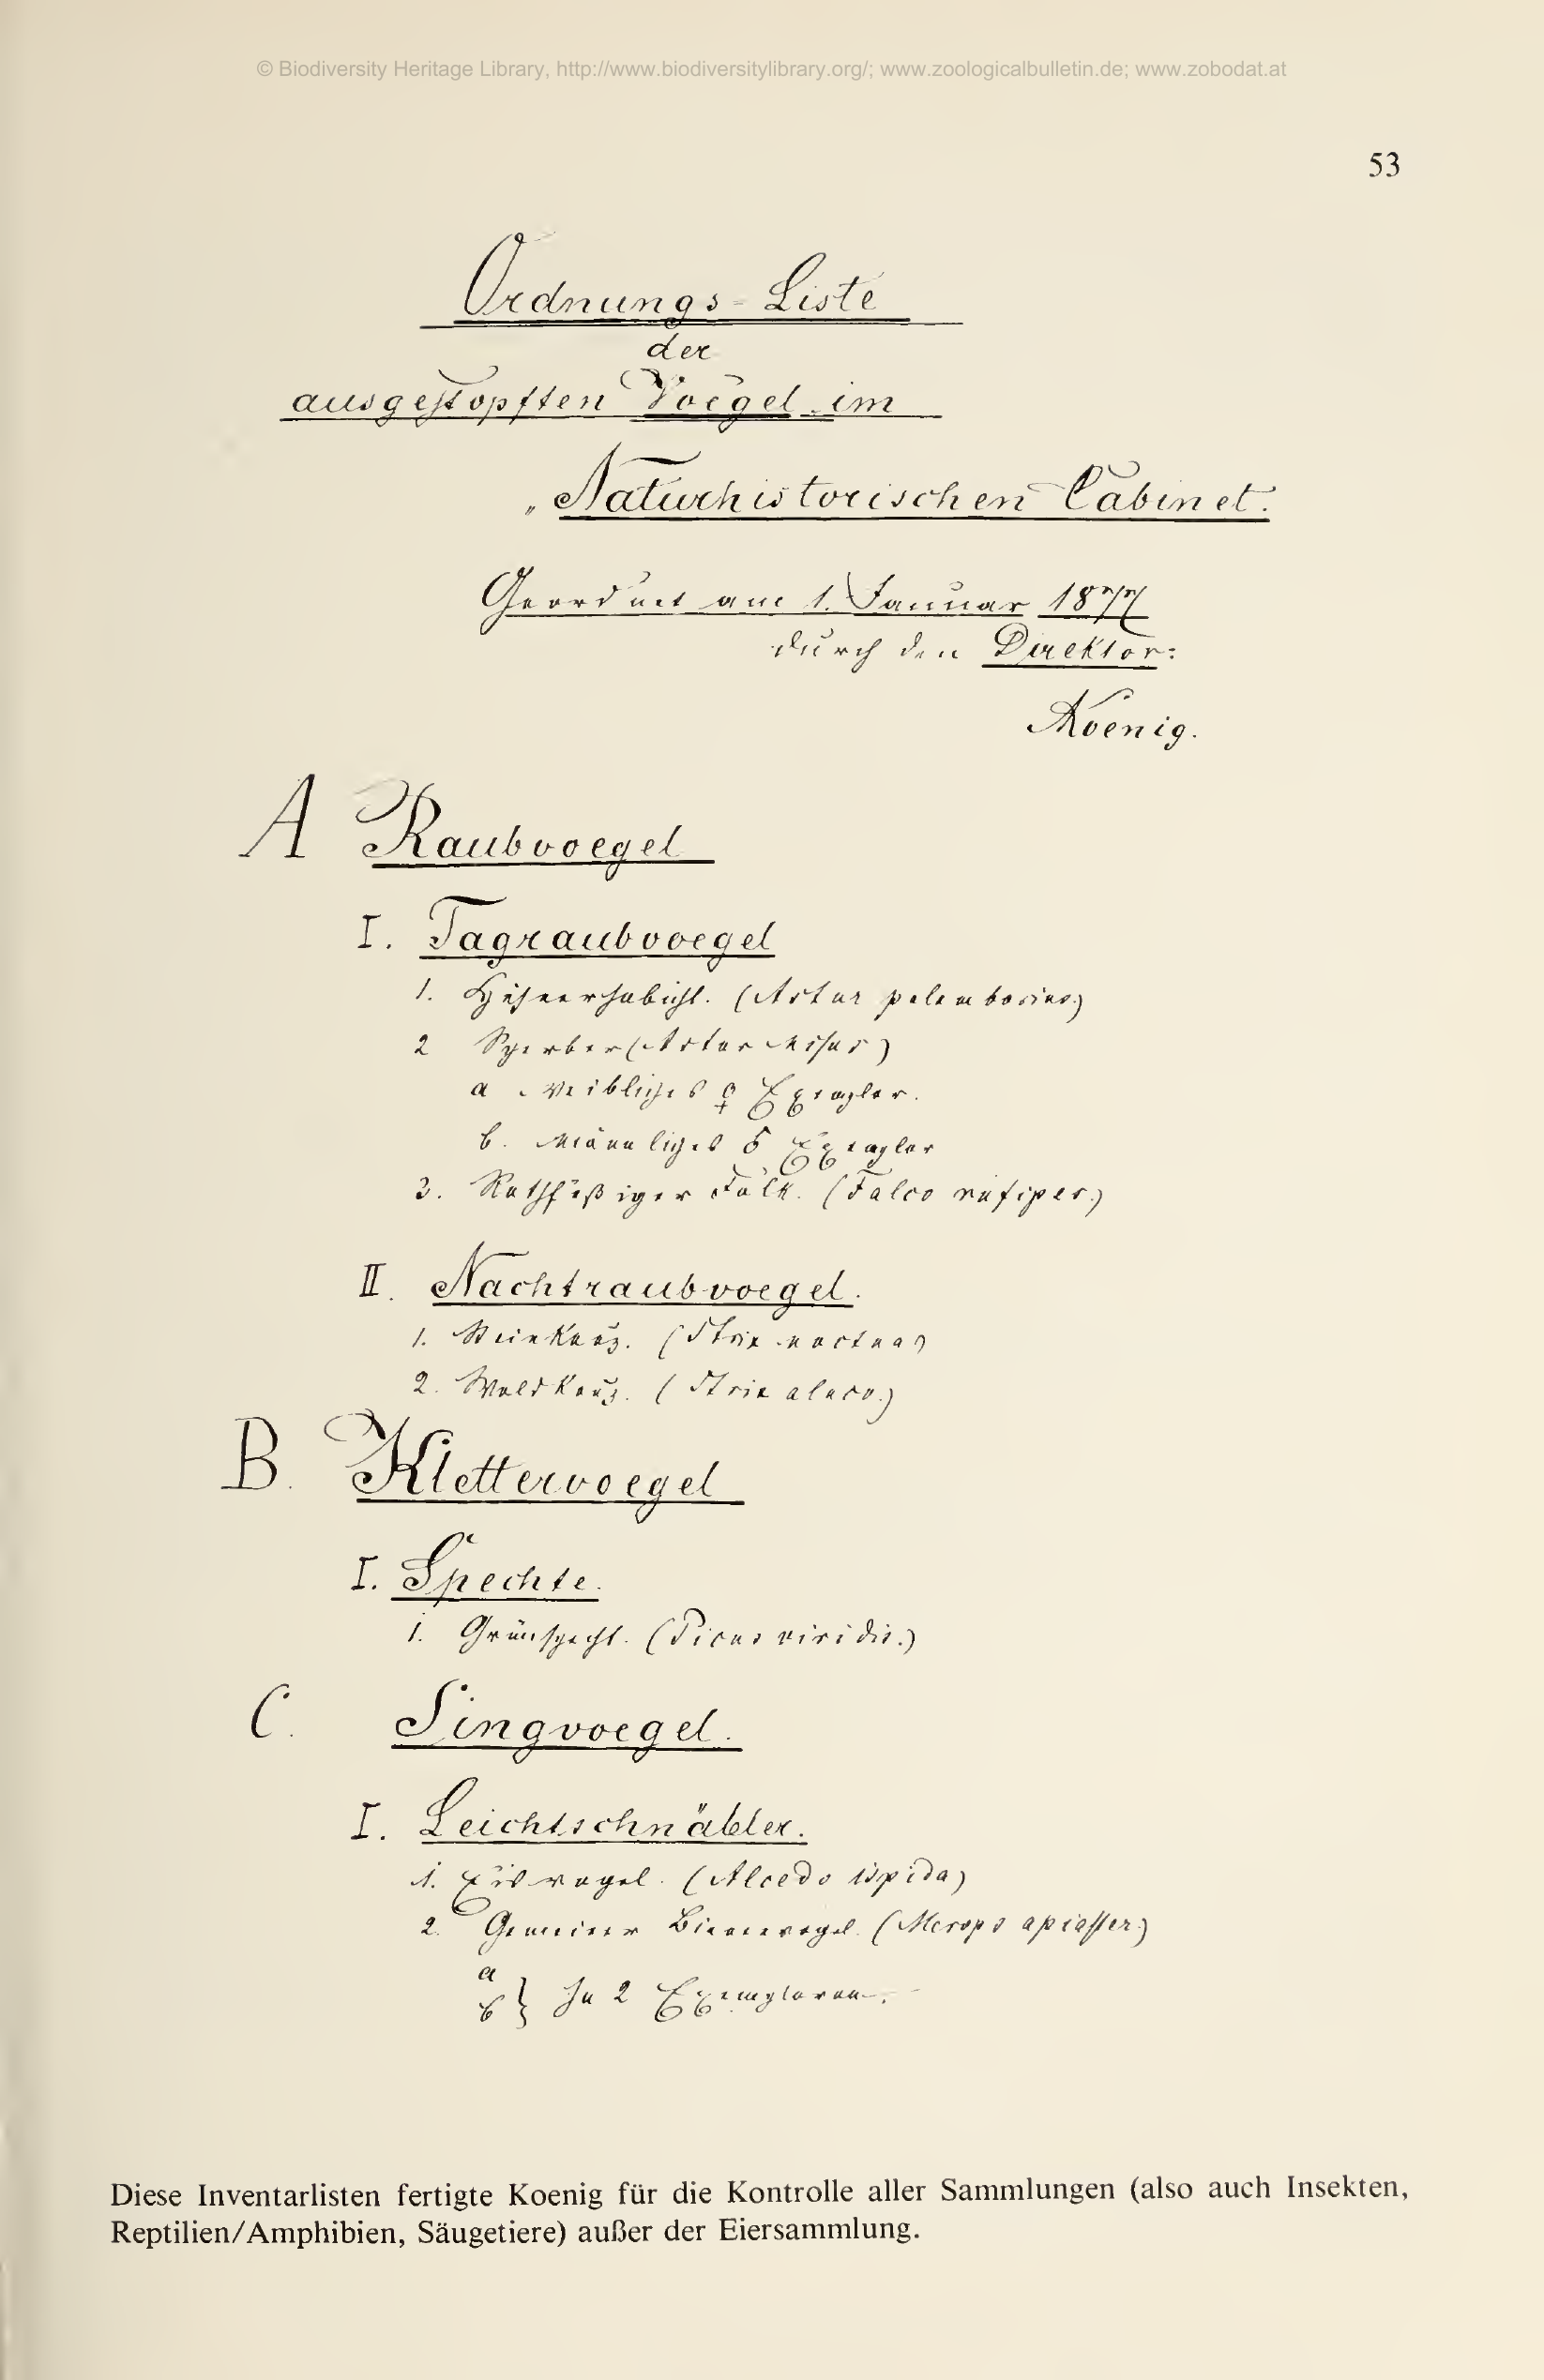 © Biodiversity Heritage Library, http://www.biodiversitylibrary.org/; www.zoologicalbulletin.de; www.zobodat.at
53
Ordnungs-Liste
der
ausgestopften Voegel im
„Naturhistorischen Cabinet.
Geordnet am 1. Januar 1877
durch den Direktor:
Koenig.
A Raubvoegel
I. Tagraubvoegel
1. Hühnerhabicht. (Astur palumbarius)
2 Sperber (Astur nisus)
a weibliches ♀ Exemplar.
b. männliches ♂ Exemplar
3. Rothfüßiger Falk. (Falco rufipes.)
II. Nachtraubvoegel.
1. Steinkauz. (Strix noctua)
2. Waldkauz. (Strix aluco.)
B. Klettervoegel
I. Spechte.
1. Grünspecht. (Picus viridis.)
C. Singvoegel.
I. Leichtschnäbler.
1. Eisvogel. (Alcedo ispida)
2. Gemeiner Bienenvogel. (Merops apiaster)
a
b } In 2 Exemplaren.
Diese Inventarlisten fertigte Koenig für die Kontrolle aller Sammlungen (also auch Insekten,
Reptilien/Amphibien, Säugetiere) außer der Eiersammlung.